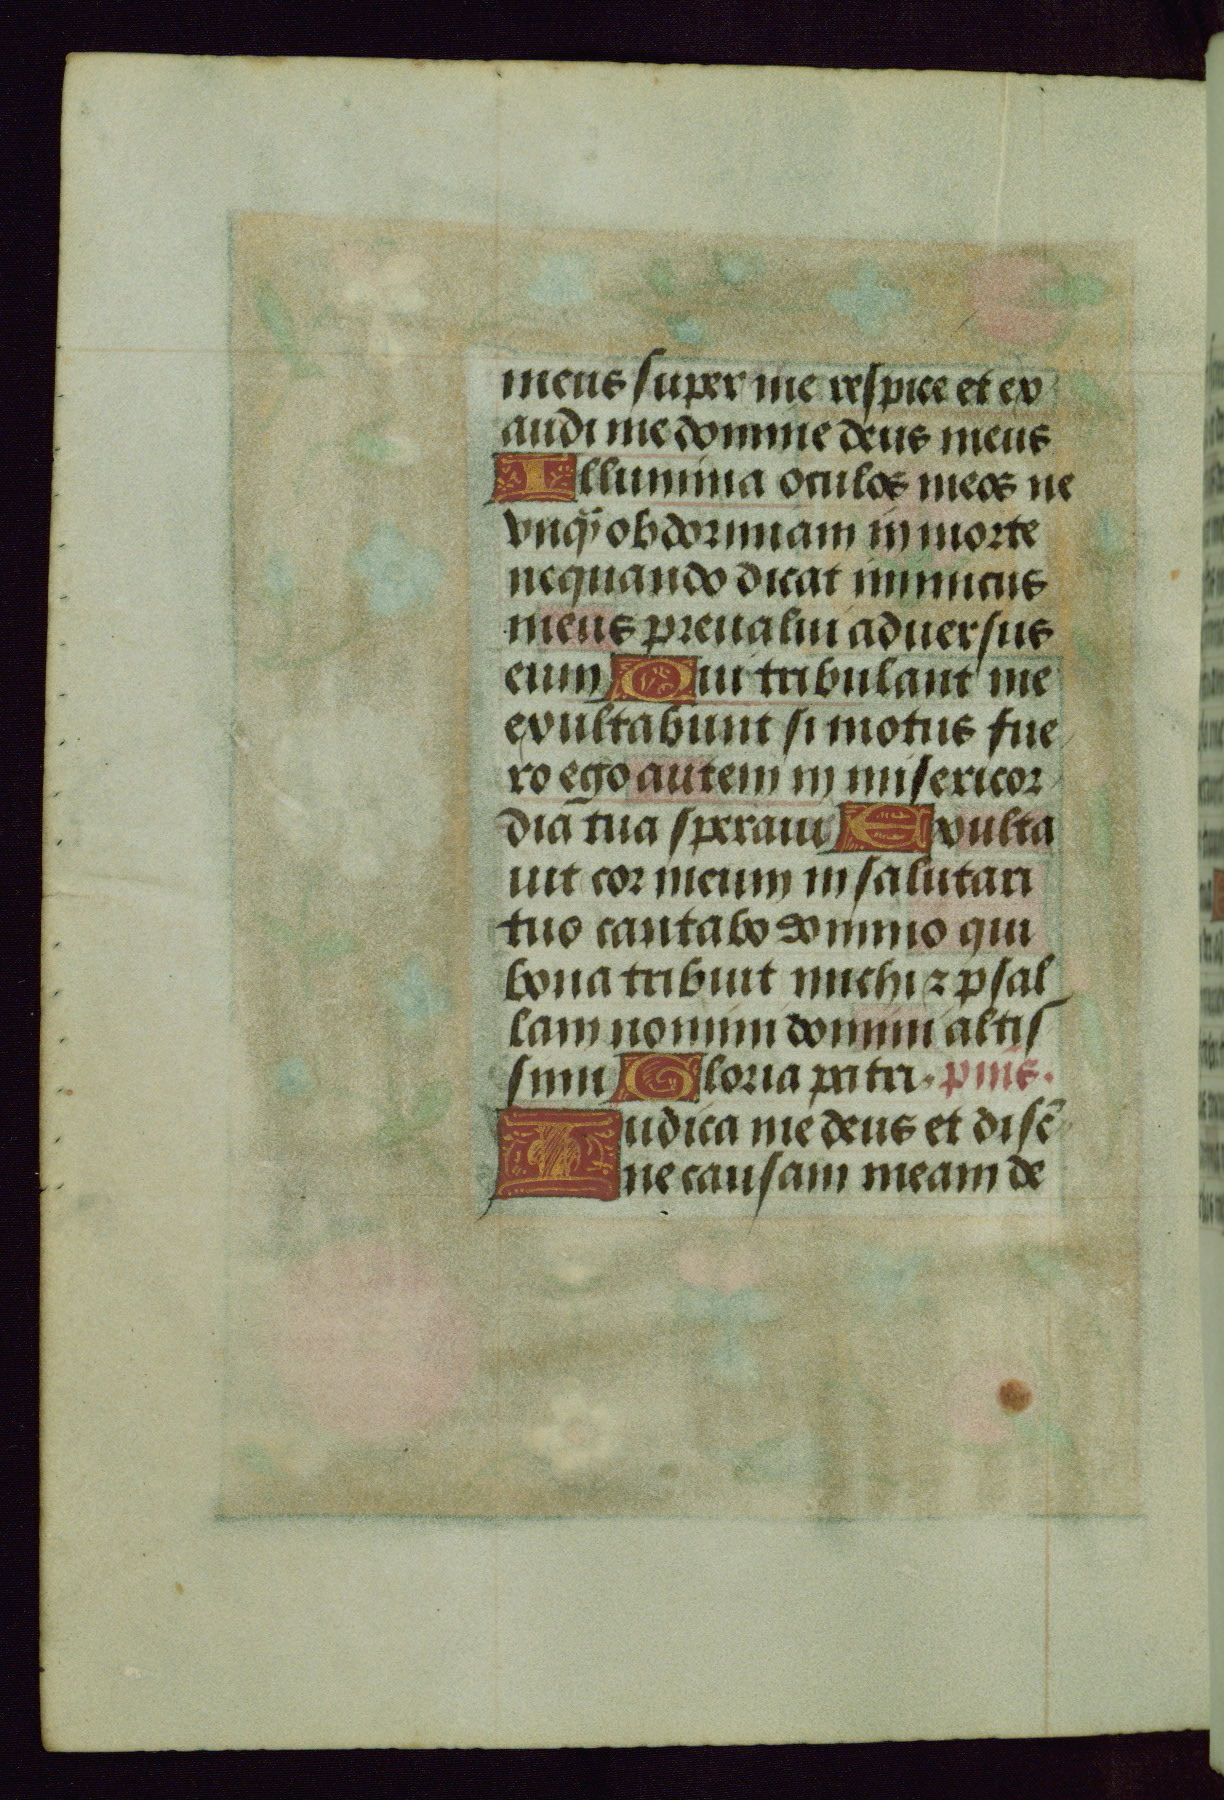 meus super me respice et ex
audi me domine deus meus
Illumina oculos meos ne
vnq̃ obdormiam in morte
nequando dicat inimicus
meus preualui aduersus
eum Qui tribulant me
exultabunt si motus fue
ro ego autem in misericor
dia tua speraui Exulta
uit cor meum in salutari
tuo cantabo domino qui
bona tribuit michi ⁊ psal
lam nomini domini altis
simi Gloria patri. p̄s.
Iudica me deus et disc̄
ne causam meam de